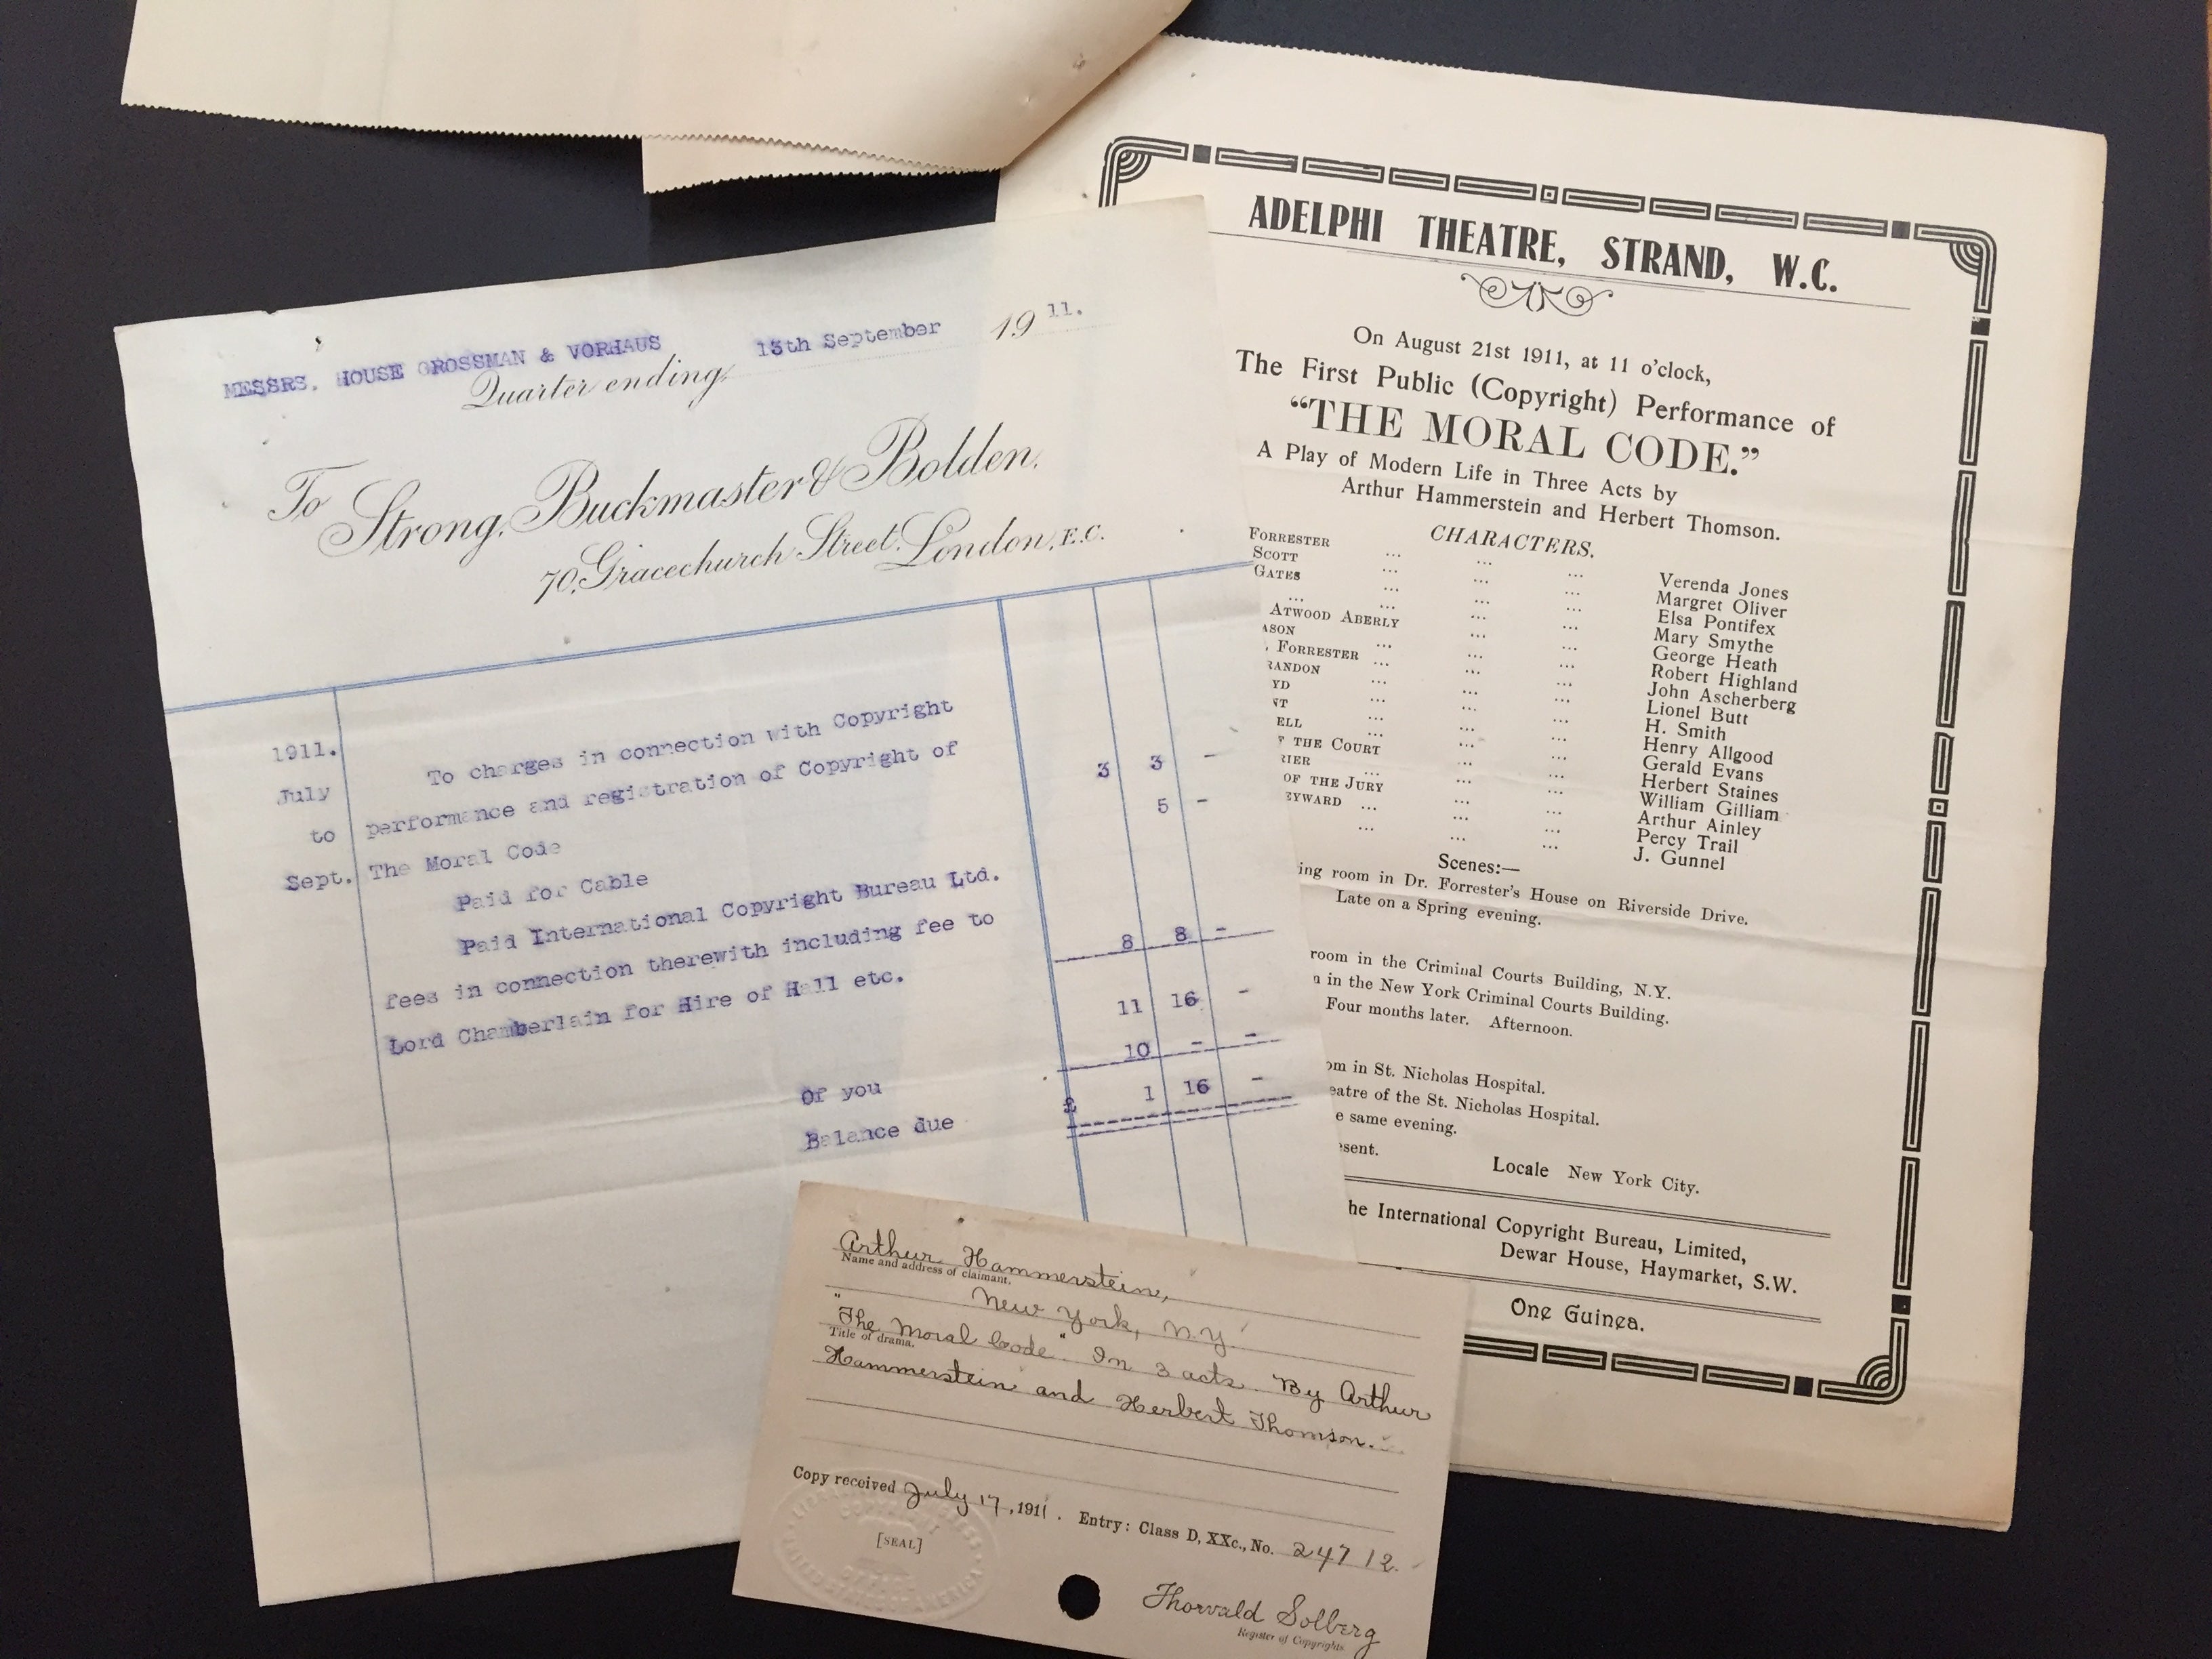 MESSRS. HOUSE GROSSMAN & VORHAUS
Quarter ending 15th September 1911.
To Strong, Buckmaster & Bolden,
70, Gracechurch Street, London, E.C.
1911.
July
to
Sept.
To charges in connection with Copyright
performance and registration of Copyright of
The Moral Code
Paid for Cable
Paid International Copyright Bureau Ltd.
fees in connection therewith including fee to
Lord Chamberlain for Hire of Hall etc.
Of you
Balance due
3 3 -
5 -
8 8 -
11 16 -
10 - -
£ 1 16 -
ADELPHI THEATRE, STRAND, W.C.
On August 21st 1911, at 11 o'clock,
The First Public (Copyright) Performance of
“THE MORAL CODE.”
A Play of Modern Life in Three Acts by
Arthur Hammerstein and Herbert Thomson.
CHARACTERS.
FORRESTER ... ... ... Verenda Jones
SCOTT ... ... ... Margret Oliver
GATES ... ... ... Elsa Pontifex
... ... ... ... Mary Smythe
ATWOOD ABERLY ... ... George Heath
ASON ... ... ... Robert Highland
FORRESTER ... ... ... John Ascherberg
RANDON ... ... ... Lionel Butt
YD ... ... ... H. Smith
NT ... ... ... Henry Allgood
ELL ... ... ... Gerald Evans
F THE COURT ... ... Herbert Staines
RIER ... ... ... William Gilliam
OF THE JURY ... ... Arthur Ainley
EYWARD ... ... ... Percy Trail
... ... ... J. Gunnel
Scenes:—
ing room in Dr. Forrester's House on Riverside Drive.
Late on a Spring evening.
room in the Criminal Courts Building, N.Y.
in the New York Criminal Courts Building.
Four months later. Afternoon.
om in St. Nicholas Hospital.
eatre of the St. Nicholas Hospital.
e same evening.
esent. Locale New York City.
he International Copyright Bureau, Limited,
Dewar House, Haymarket, S.W.
One Guinea.
Arthur Hammerstein,
Name and address of claimant.
New York, N.Y.
"The Moral Code". In 3 acts. By Arthur
Title of drama.
Hammerstein and Herbert Thomson.
Copy received July 17, 1911. Entry: Class D, XXc., No. 24712.
[SEAL]
Thorvald Solberg
Register of Copyrights.